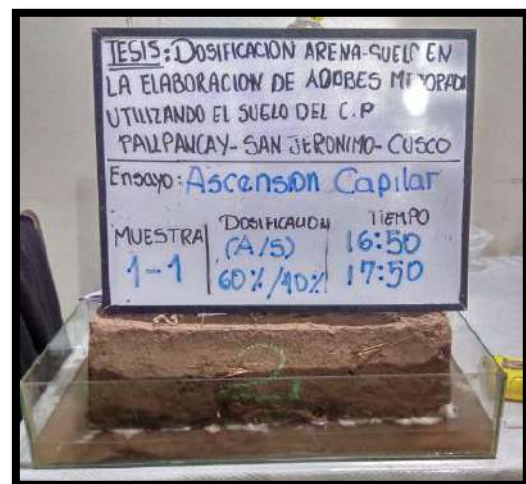 TESIS: DOSIFICACION ARENA-SUELO EN
LA ELABORACION DE ADOBES MEJORADO
UTILIZANDO EL SUELO DEL C.P
PALLPANCAY-SAN JERONIMO-CUSCO
Ensayo: Ascension Capilar
MUESTRA DOSIFICACION TIEMPO
(A/S) 16:50
1-1 60%/40% 17:50
2